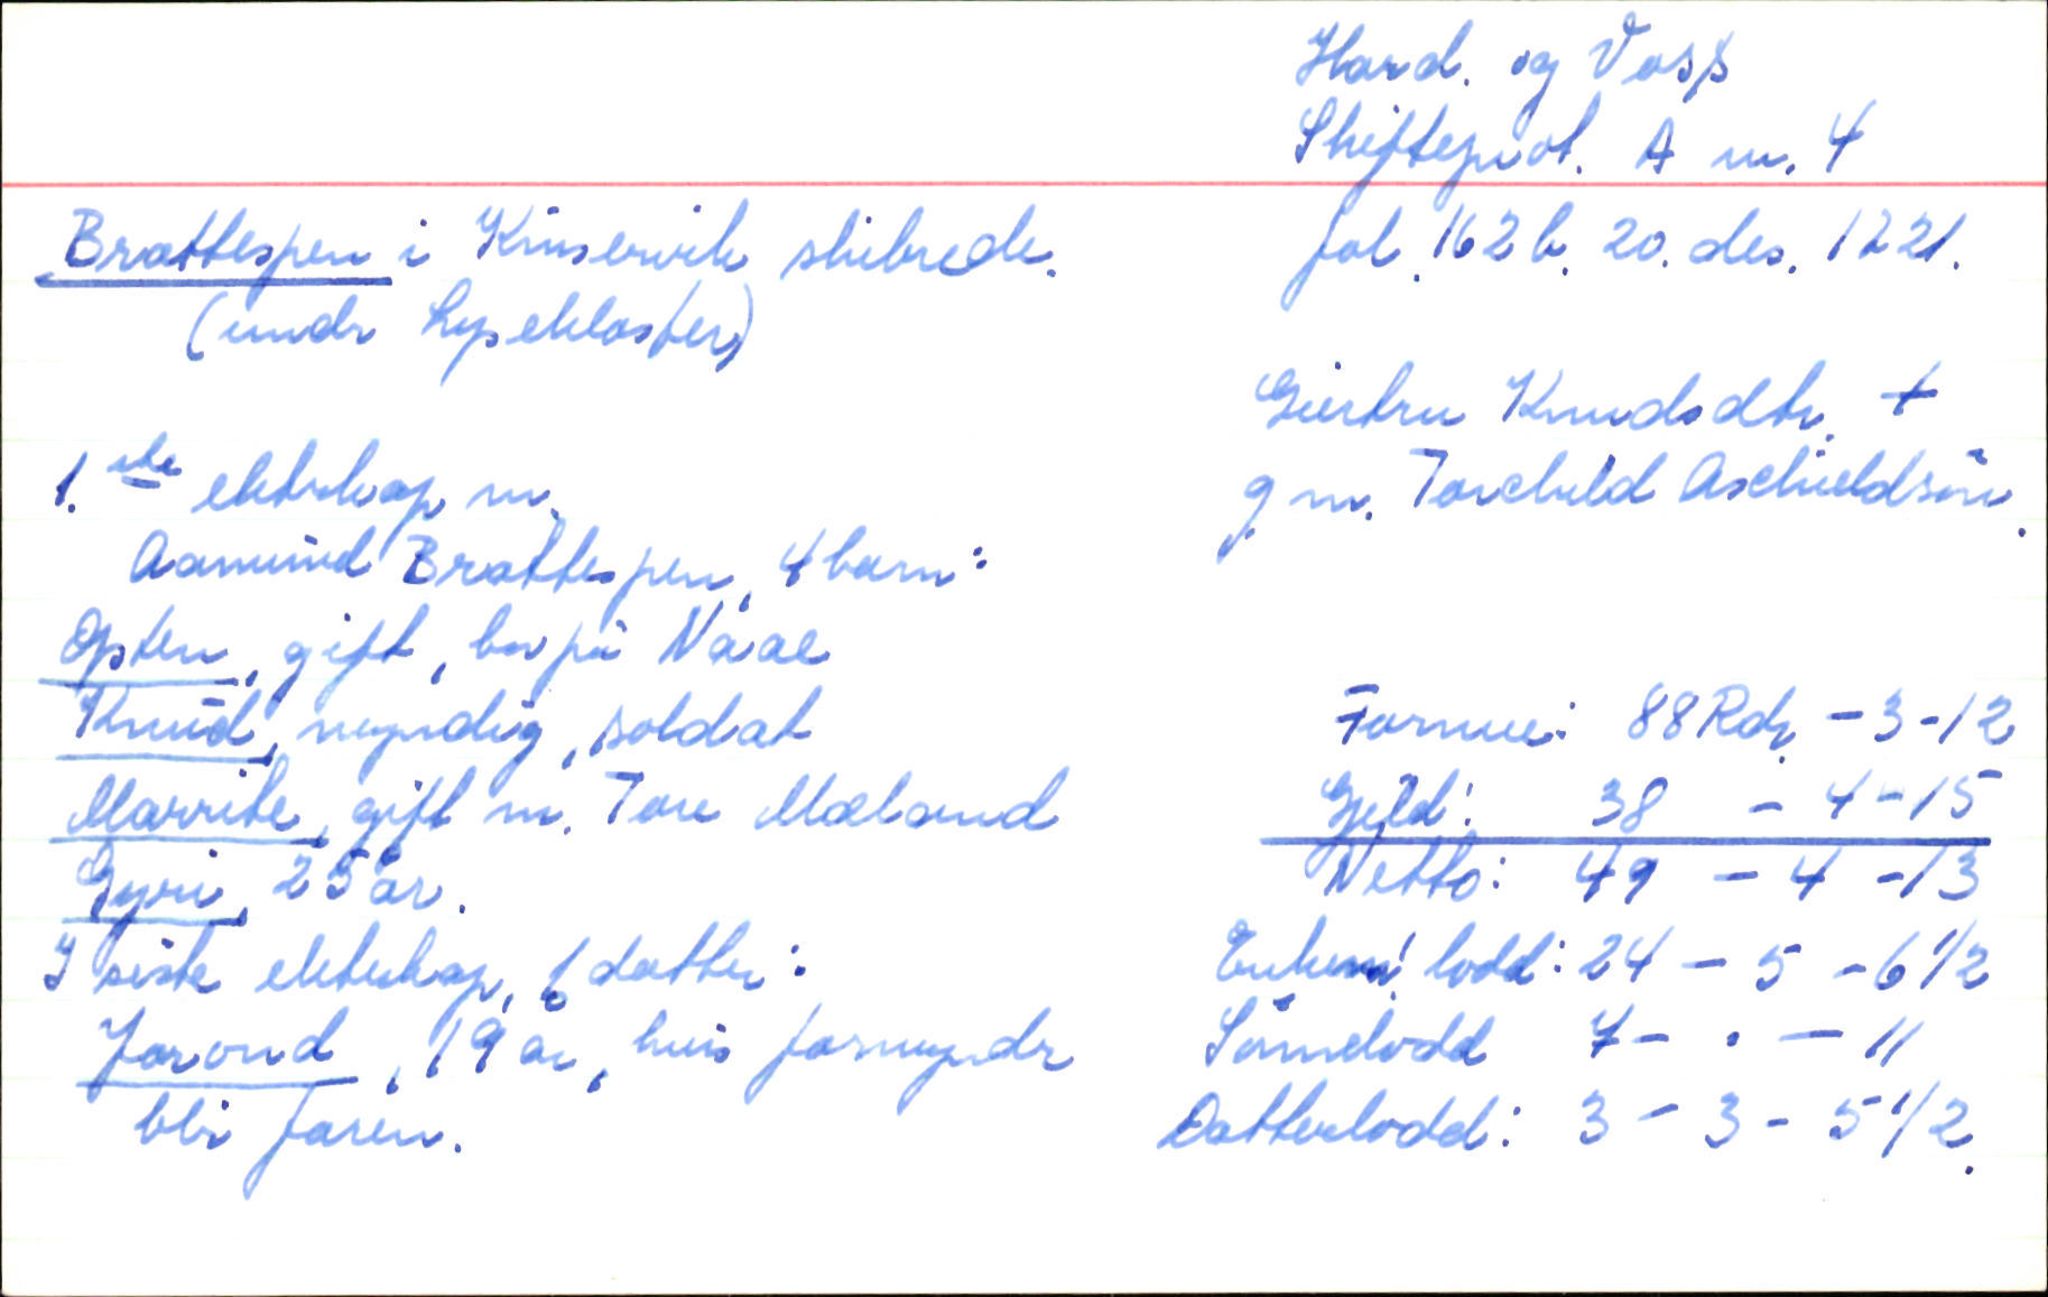 Hard. og Voss
Skifteprot. A nr. 4
fol. 162b. 20. des. 1721.
Brattespen i Kinservik skibrede.
(undr Lysekloster)
Giertru Knudsdtr. +
g. m. Torchild Aschieldsøn.
1.ste ekteskap m.
Aamund Brattespen, 4 barn:
Opsten, gift, bor på Naae
Knud, myndig, soldat
Marrite, gift m. Tore Mæland
Gyri, 25 år.
I siste ekteskap, 1 datter:
Jorond, 19 år, hvis formyndr
blir faren.
Formue: 88 Rdr. - 3 - 12
Gjeld: 38 - 4 - 15
Netto: 49 - 4 - 13
Enkem. lodd: 24 - 5 - 6 1/2
Sønnelodd 7 - . - 11
Datterlodd: 3 - 3 - 5 1/2.